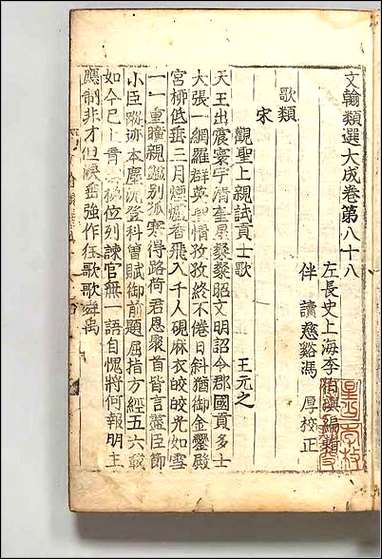 文翰類選大成卷第八十八
左長史上海李伯璵編輯
伴讀慈谿馮厚校正
歌類
宋
觀聖上親試貢士歌 王元之
天王出震寰宇清奎星粲粲昭文明詔令郡國貢多士
大張一網羅群英聖情孜孜終不倦日斜猶御金鑾殿
宮柳低垂三月煙爐香飛入千人硯麻衣皎皎光如雪
一一重瞳親鑑別孤寒得路荷君恩聚首皆言盡臣節
小臣蹤迹本塵泥登科曾賦御前題屈指方經五六載
如今已上青梯位列諫官無一語自愧將何報明主
應制非才但淚垂強作狂歌歌舜禹